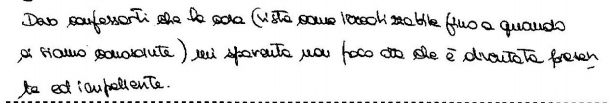 Devo confessarti che la cosa (vista come irrealizzabile fino a quando
ci siamo conosciute) mi spaventa non poco ora che è diventata presen
te ed impellente.